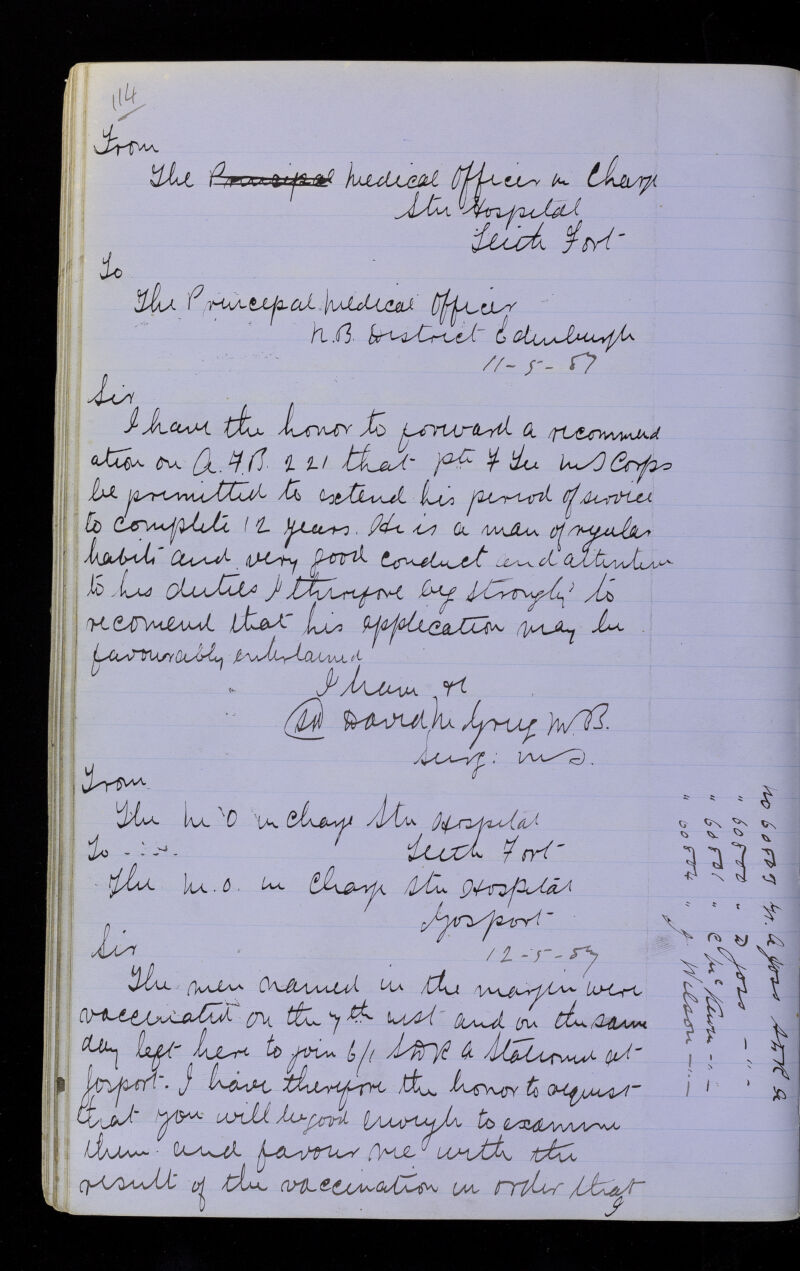 114
From
The Principal Medical Officer in Charge
Stn Hospital
Leith Fort
To
The Principal Medical Officer
N.B. District Edinburgh
11-5-87
Sir
I have the honor to forward a recommend
ation on A.F.B. 221 that pte F Lee M S Corps
be premitted to extend his period of service
to complete 12 years. He is a man of regular
habits and very good conduct and attention
to his duties I therefore beg strongly to
recomend that his application may be
favourably entertained
I have &c
(Sd) David M Greig M.B.
Surg: M.S.
From
The M O in Charge Stn Hospital
To Leith Fort
The M.O. in Charge Stn Hospital
Gosport
12-5-87
Sir
The men named in the margin were
vaccinated on the 7th inst and on the same
day left here to join 6/1 S.D.R.A Stationed at
Gosport. I have therefore the honor to request
that you will be good enough to examine
them and favour me with the
result of the vaccination in order that
No Gr. A Joss S.D.R.A
" " D Joss - " -
" 60801 " C McKeown - " -
" 60804 " J Wilson - " -